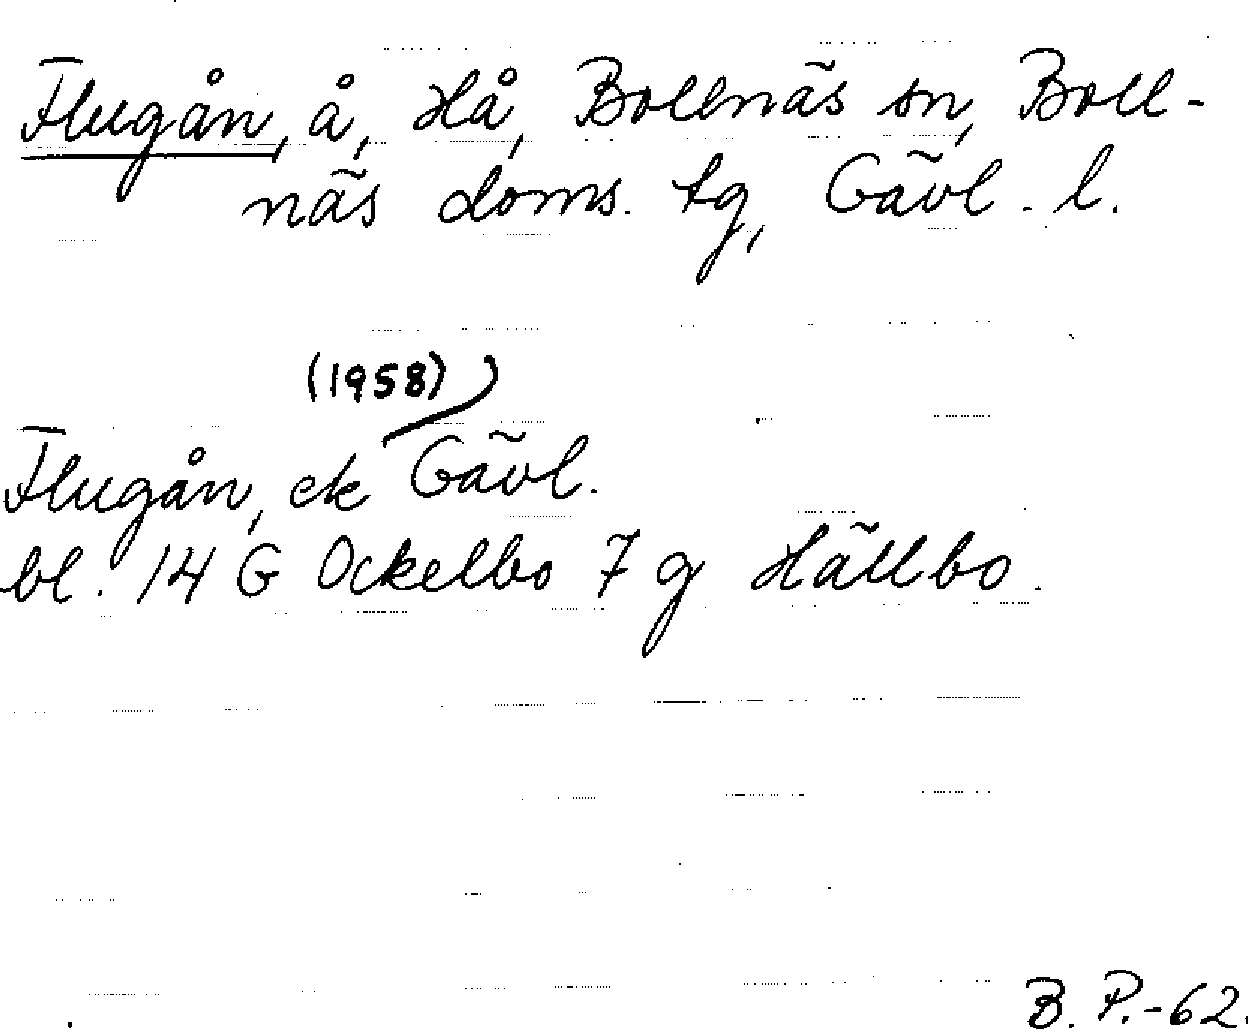 Flugån, å, Hå, Bollnäs sn, Boll-
näs doms. tg, Gävl. l.
(1958)
Flugån, ek Gävl.
bl. 14 G Ockelbo 7 g Hällbo.
B. P.-62.